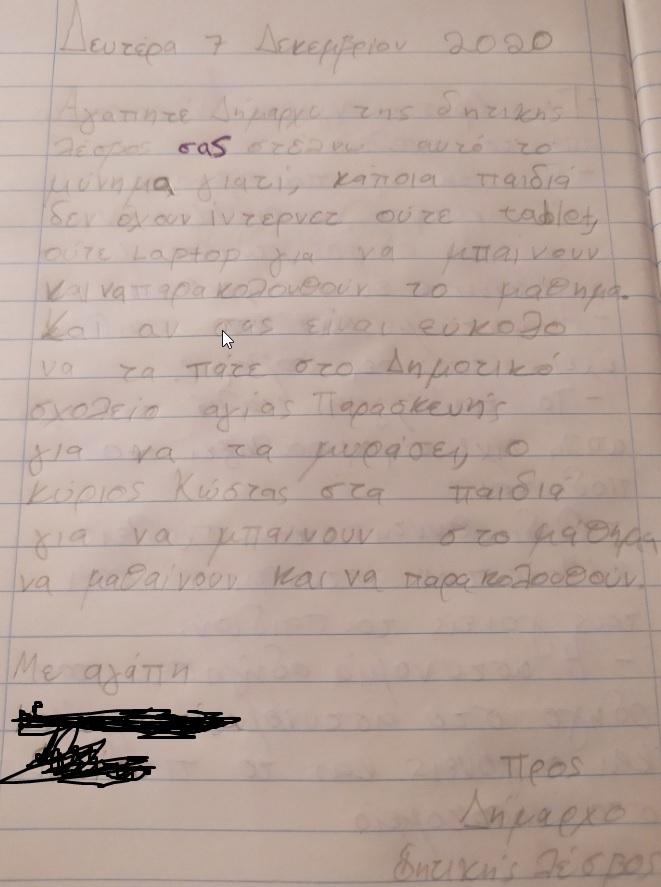 Δευτέρα 7 Δεκεμβρίου 2020
Αγαπητέ Δήμαρχε της δητικής
λέσβος σας στέλνω αυτό το
μύνημα γιατί, κάποια παιδιά
δεν έχουν ίντερνετ ούτε tablet,
ούτε Laptop για να μπαίνουν
και να παρακολουθούν το μάθημα.
Και αν σας είναι εύκολο
να τα πάτε στο Δημοτικό
σχολείο αγίας Παρασκευής
για να τα μυράσει, ο
κύριος Κώστας στα παιδιά
για να μπαίνουν στο μάθημα
να μαθαίνουν και να παρακολουθούν.
Με αγάπη
Προς
Δήμαρχο
δητικής λέσβος